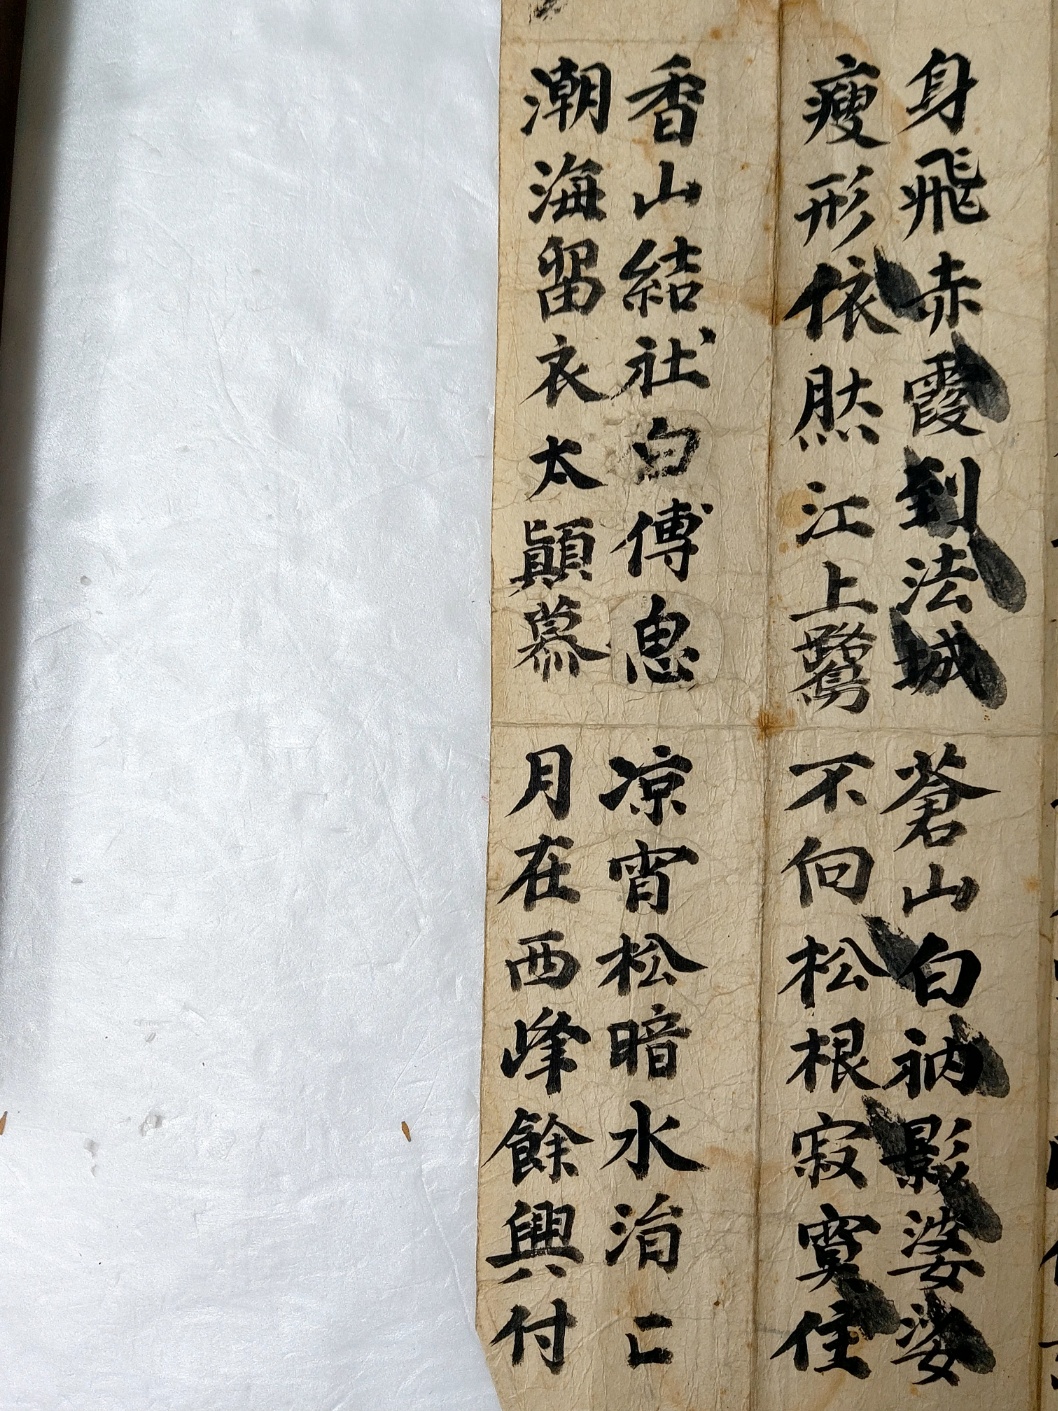 身飛赤霞到法城 蒼山白衲影婆娑
瘦形依然江上鷺 不向松根寂寞住
香山結社白傅思 凉宵松暗水涓亡
潮海留衣太顚慕 月在西峰餘興付